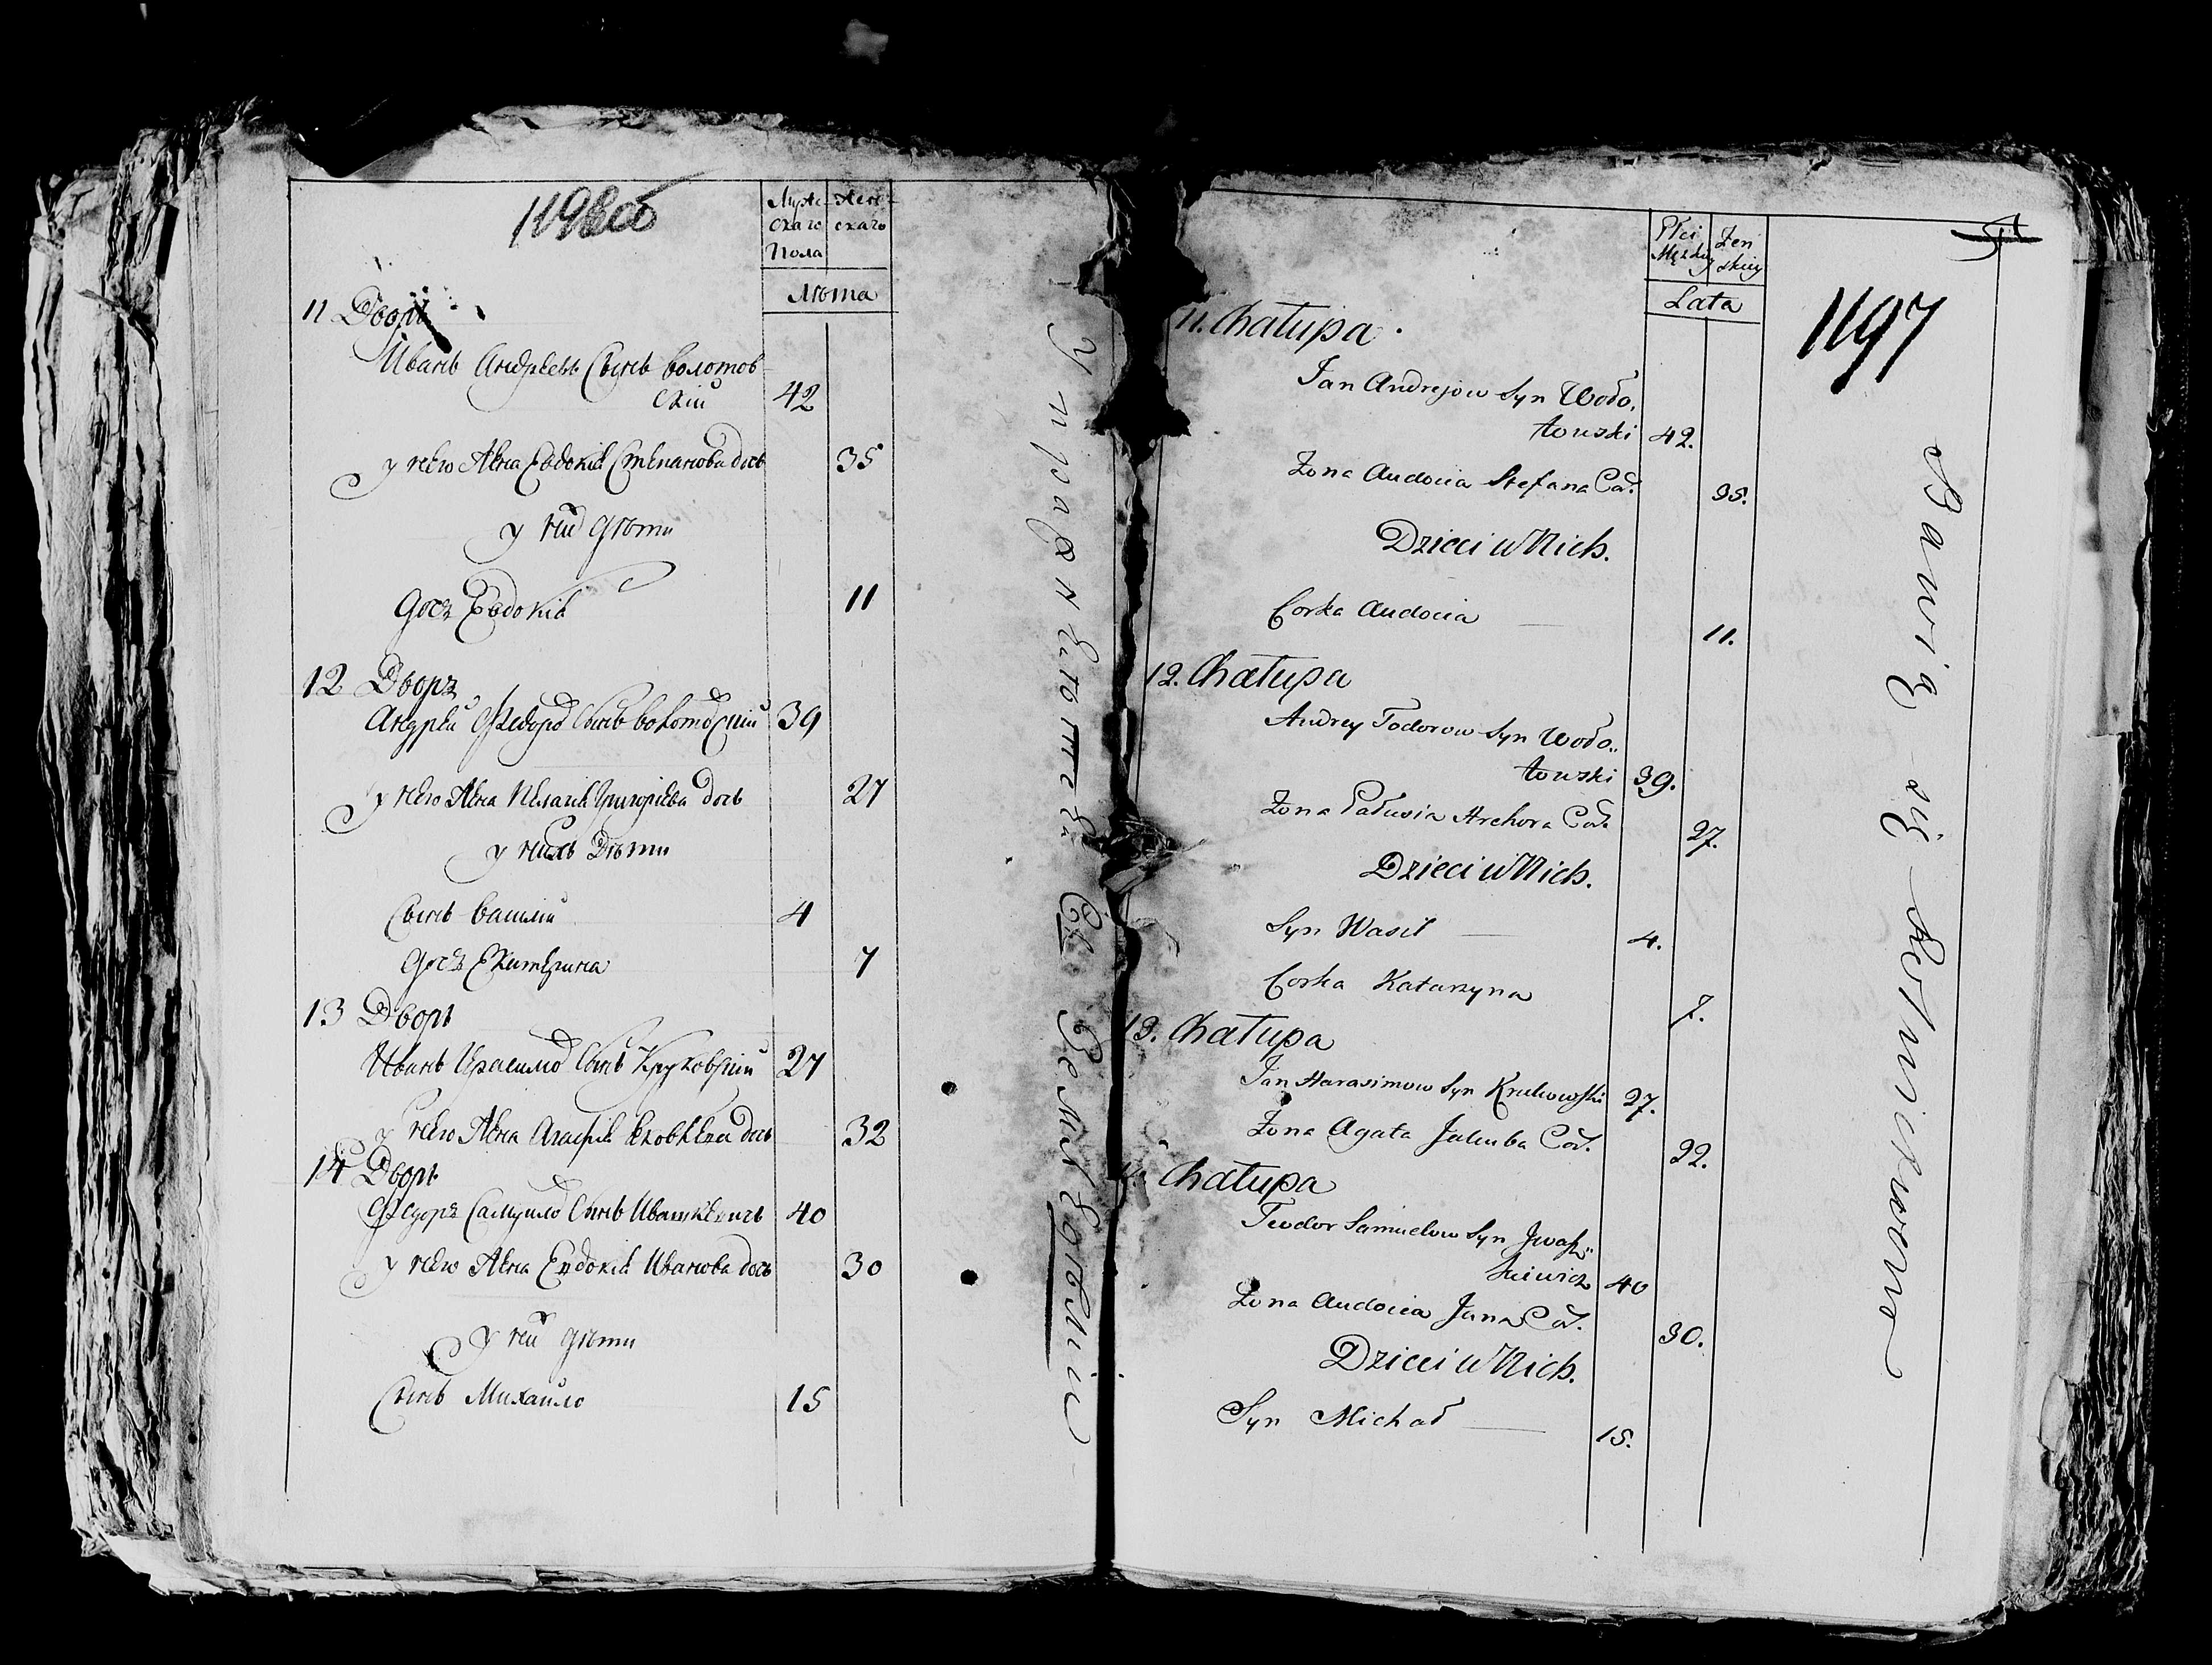 1198об
Муже- Жен-
скаго скаго
Пола
Лѣта
11 Дворъ
Иванъ Андреевъ Сынъ Волотов-
скій 42
у него Жена Евдокія Степанова дочь 35
у ний дѣти
дочь Евдокія 11
12 Дворъ
Андрей Федоров Сынъ Волотовскій 39
у него Жена Пелагия Григориева дочь 27
у нихъ Дѣти
Сынъ Василій 4
дочь Екатерина 7
13 Дворъ
Иванъ Гарасимов Сынъ Круковский 27
у него Жена Агафия Яковлева дочь 32
14 Дворъ
Федоръ Самуилов Сынъ Ивашкевичъ 40
у него Жена Евдокия Иванова дочь 30
у ний дѣти
Сынъ Михайло 15
Płci Żen
Męzkiy skiey
Lata
1197
11. Chałupa.
Jan Andrejow Syn Woło,
towski 42.
Zona Audocia Stefana Cor. 35.
Dzieci u Nich.
Corka Audocia 11.
12. Chałupa
Andrey Todorow Syn Woło..
towski 39.
Zona Pałusia Hrehora Cor. 27.
Dzieci u Nich.
Syn Wasil 4.
Corka Katarzyna 7.
13. Chałupa
Jan Harasimow Syn Krukowski 27.
Zona Agata Jakuba Cor. 32.
14. Chałupa
Teodor Samuelow Syn Jwasz..
kiewicz 40
Zona Audocia Jana Cor. 30.
Dzieci u Nich.
Syn Michał 15.